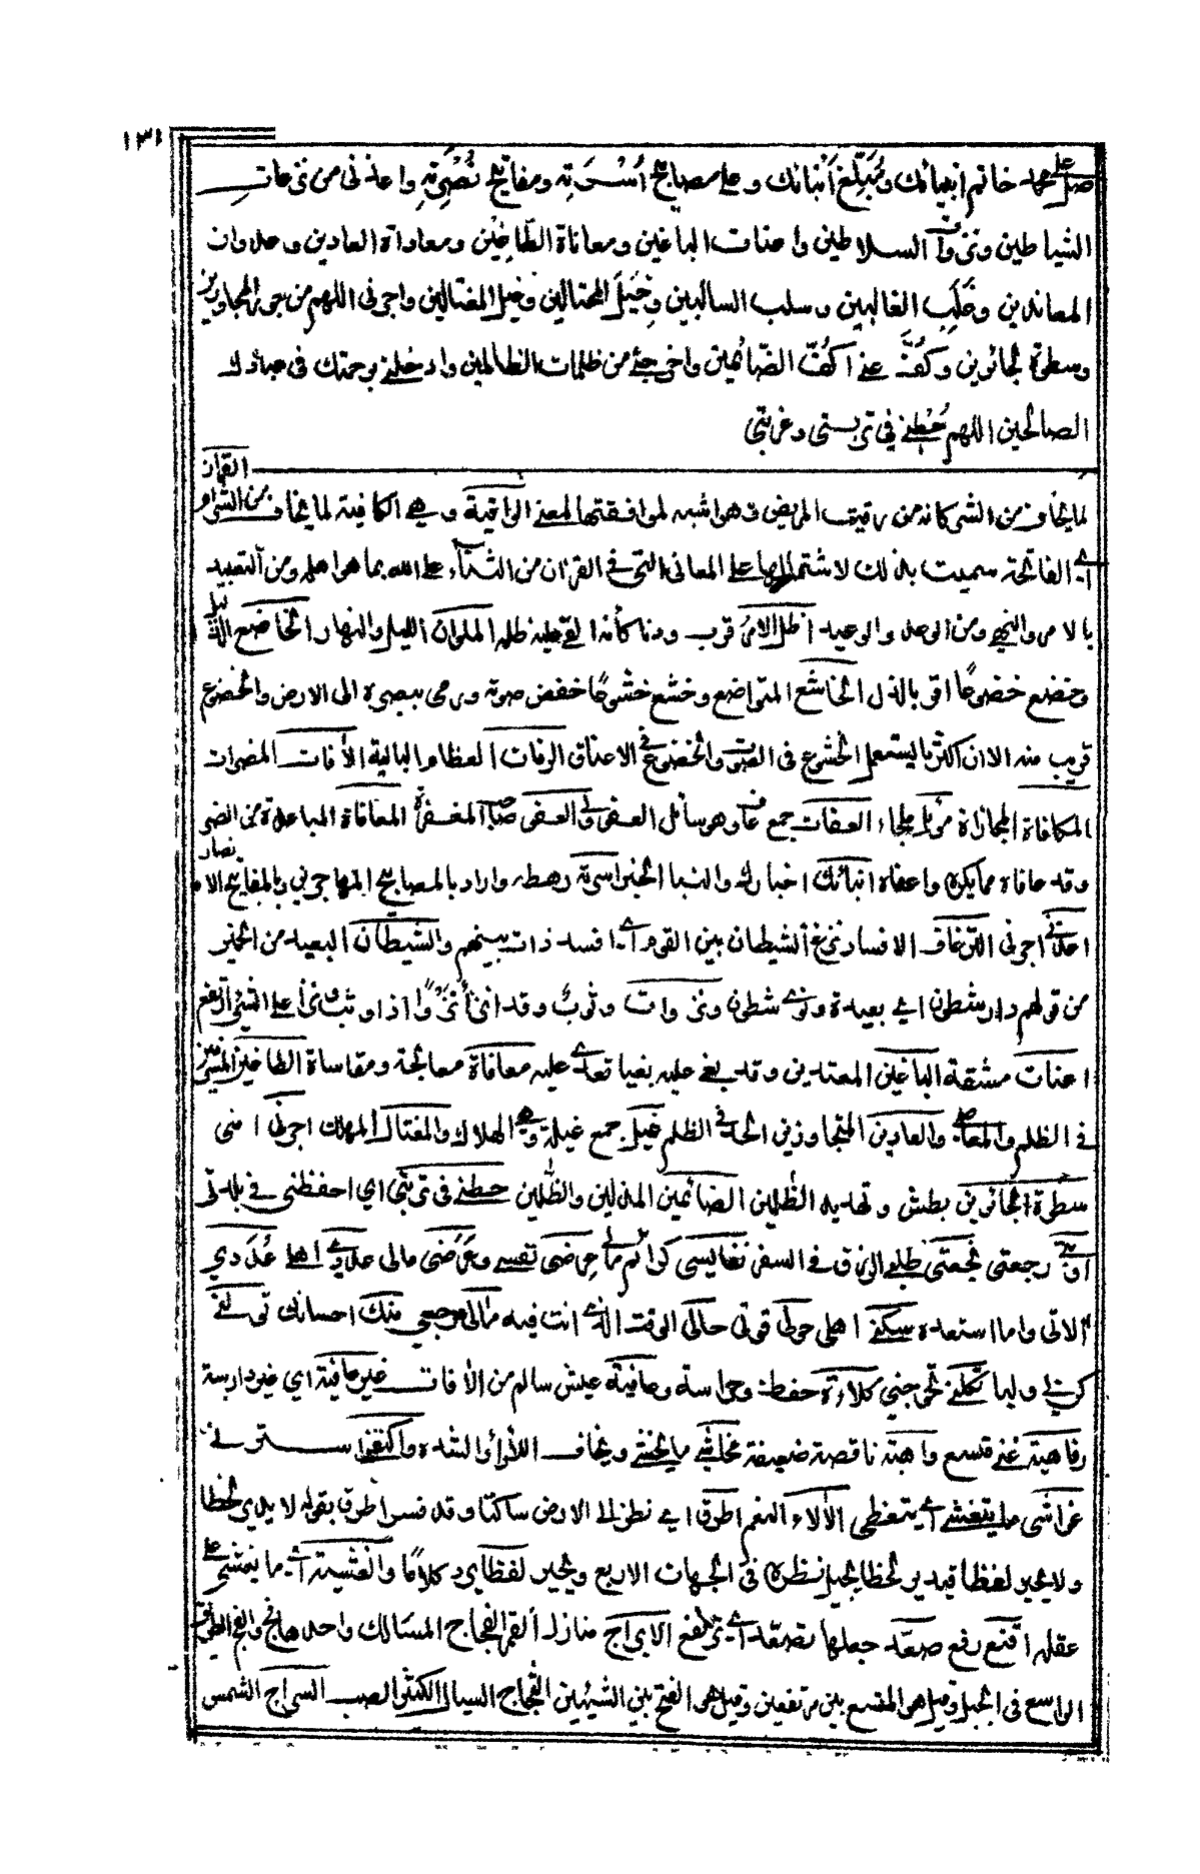 ١٣١
صل على محمد خاتم أنبيائك ومُبَلِّغ أنبائك وعلى مصابيح أسرته ومفاتيح نُصْرَتِهِ واعذنى من نزغات
الشياطين ونزوات السلاطين واعنات الباغين ومعاناة الطّاغِيْن ومعاداة العادين وعدوان
المعاندين وغَلَبِ الغالبين وسلب السالبين وحِيَلِ المحتالين وغيل المغتالين واجرنى اللهم من جور المجاورين
وسطوة الجائرين وكُفَّ عنى اكُفّ الضّائمين واخرجنى من ظلمات الظالمين وادخلنى برحمتك فى عبادك
الصالحين اللهم حُطنى فى تربتى وغربتى
القران
لما يخاف من الشر كانه من رقيت المريض وهو اشبه لموافقتها لمعنى الواقية وهى الكافية لما يخاف من الشر ام
اى الفاتحة سميت بذلك لاشتمالها على المعانى التى فى القران من الثناء على الله بما هو اهله ومن التعبيد
بالامر والنهى ومن الوعد والوعيد اظل الامر قرب ودنا كأنه القى عليه ظله الملوان الليل والنهار الخاضع
وخضع خضوعًا اقر بالذل الخاشع المتواضع وخشع خشوعًا خفض صوته ورمى ببصره الى الارض والخضوع
قريب منه الا ان اكثر ما يستعمل الخشوع فى الصوت والخضوع فى الاعناق الرفات العظام البالية الأفات المضرات
المكافاة المجازاة موئل ملجاء العفات جمع عاف وهو سائل العفو والعفو المغفرة المعافاة المباعدة من الضر
وقد عافاه مما يكره واعفاه انبائك اخبارك والنبا الخبر اسرته رهطه واراد بالمصابيح المهاجرين وبالمفاتيح الانصار
اعذنى اجرنى النزغات الافساد نزغ الشيطان بين القوم اى افسد ذات بينهم والشيطان البعيد من الخير
من قولهم دار شطون اى بعيدة ونوى شطون ونزوات وثوب وقد نزا نزوًا اذا وثب
اعنات مشقة الباغين المعتدين وقد بغى عليه بغيا تعدى عليه معاناة معالجة ومقاساة الطاغين
فى الظلم والمعاصى والعادين المتجاوزين الحد فى الظلم غيل جمع غيلة وهى الهلاك والمغتال المهلك اجرنى امنى
سطوة الجائرين بطش وتهديد الظلمين الضائمين المذلين والظلمين حطنى فى تربتى اى احفظنى فى بلدتى
اوبتى رجعتى نجعتى طلبى الرزق فى السفر نفائسى كرائم مالى عرضى نفسى وعرضى مالى عددى اهلى عُدَدي
الاتى وما استعده سكنى اهلى حولى قوتى حالى الوقت الذى انت فيه مآلى مرجعى منك احسانك
كن لى وليا تكلنى تحوجنى كلاءة حفظ وحراسة وعافية عيش سالم من الأفات غير عافية اى غير دارسة
رفاهية غنى توسع واهية ناقصة ضعيفة مخاشى ما يخشى ويخاف اللأواء الشدة واكنفنى ستر لى
غواشى ما يتغشى اى يتغطى الألاء النعم اطرق اى نظر الى الارض ساكتا وقد فسر اطرق بقوله لا يدير لحظا
ولا يحير لفظا فيدير لحظا يجيل نظره فى الجهات الاربع ويحير لفظا يرد كلامًا والغشية اى ما يغشى على
عقله اقنع رفع صعّد جعلها تصعّد اى ترتفع الابراج منازل القمر الفجاج المسالك واحدها فج والفج الطريق
الواسع فى الجبل وقيل هو المتسع بين مرتفعين وقيل هو الفتح بين الشيئين الثجاج السيال الكثير الصب السراج الشمس